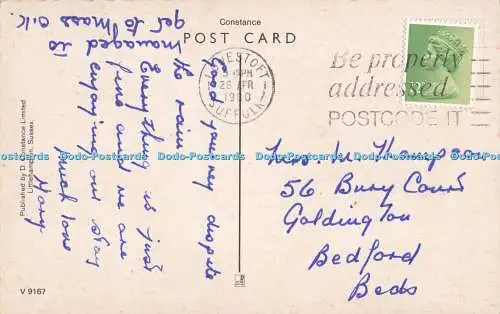 Constance
POST CARD
LOWESTOFT
SUFFOLK
5 15PM
28 APR
1980
Be properly
addressed
POSTCODE IT
Good journey dispite
the rain
Everything is just
fine and we are
enjoying our stay
Much love
Mary
managed to
get to Mass O.K.
Thompson
56 Bury Court
Goldington
Bedford
Beds
Published by D. Constance Limited
Littlehampton, Sussex.
V 9167
Dodo-Postcards Dodo-Postcards Dodo-Postcards Dodo-Postcards Dodo-Postcards Dodo-Postcards